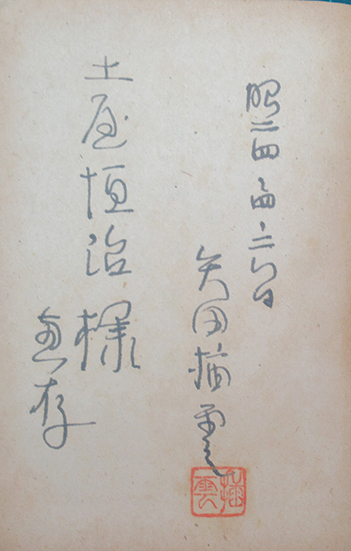 昭二四・四・二六日
矢田挿雲
挿雲
土屋恒治様
恵存